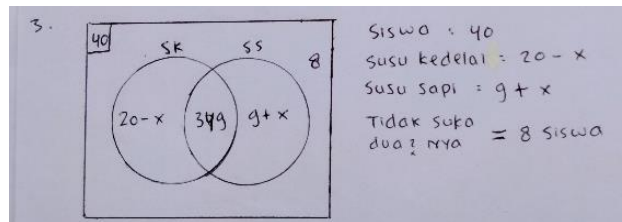 3.
40
SK
SS
8
20 - x
9 + x
Siswa : 40
Susu kedelai = 20 - x
Susu sapi : 9 + x
Tidak suka
dua2 nya = 8 siswa